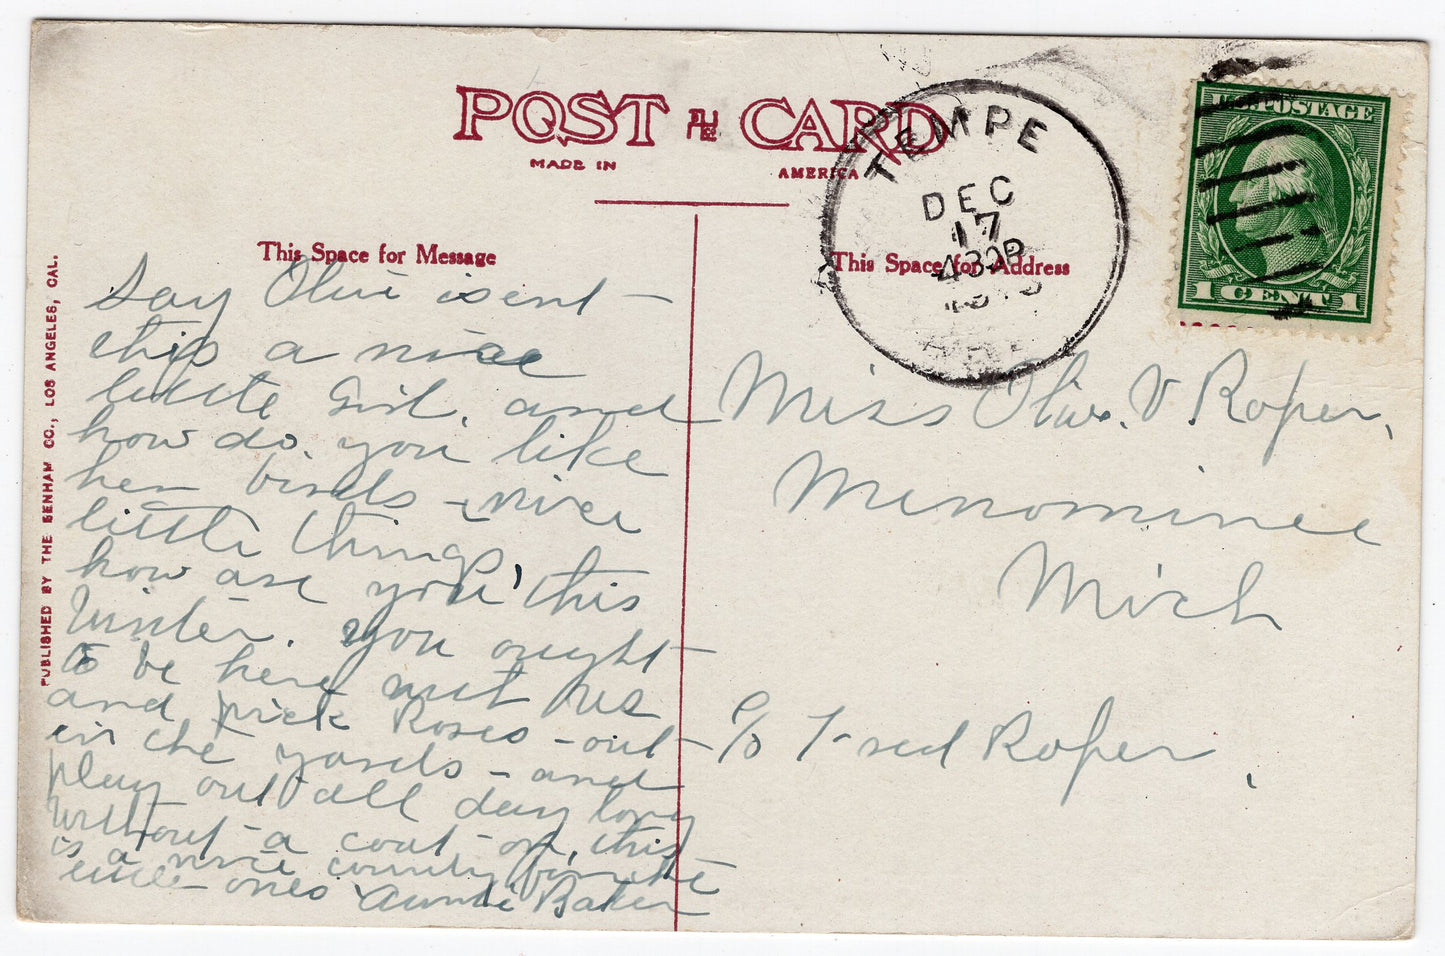 POST CARD
MADE IN AMERICA
This Space for Message
This Space for Address
PUBLISHED BY THE BENHAM CO., LOS ANGELES, CAL.
TEMPE
DEC
17
430P
U.S. POSTAGE
1 CENT 1
Say Olive isent
this a nice
little girl, and
how do you like
her birds - nice
little things,
how are you this
Winter. you ought
to be here with us
and pick Roses - out
in the yards - and
play out all day long
without - a coat - on, this
is a nice country for the
little - ones Auntie Baker
Miss Olive. V. Roper,
Menominee
Mich
c/o Fred Roper,